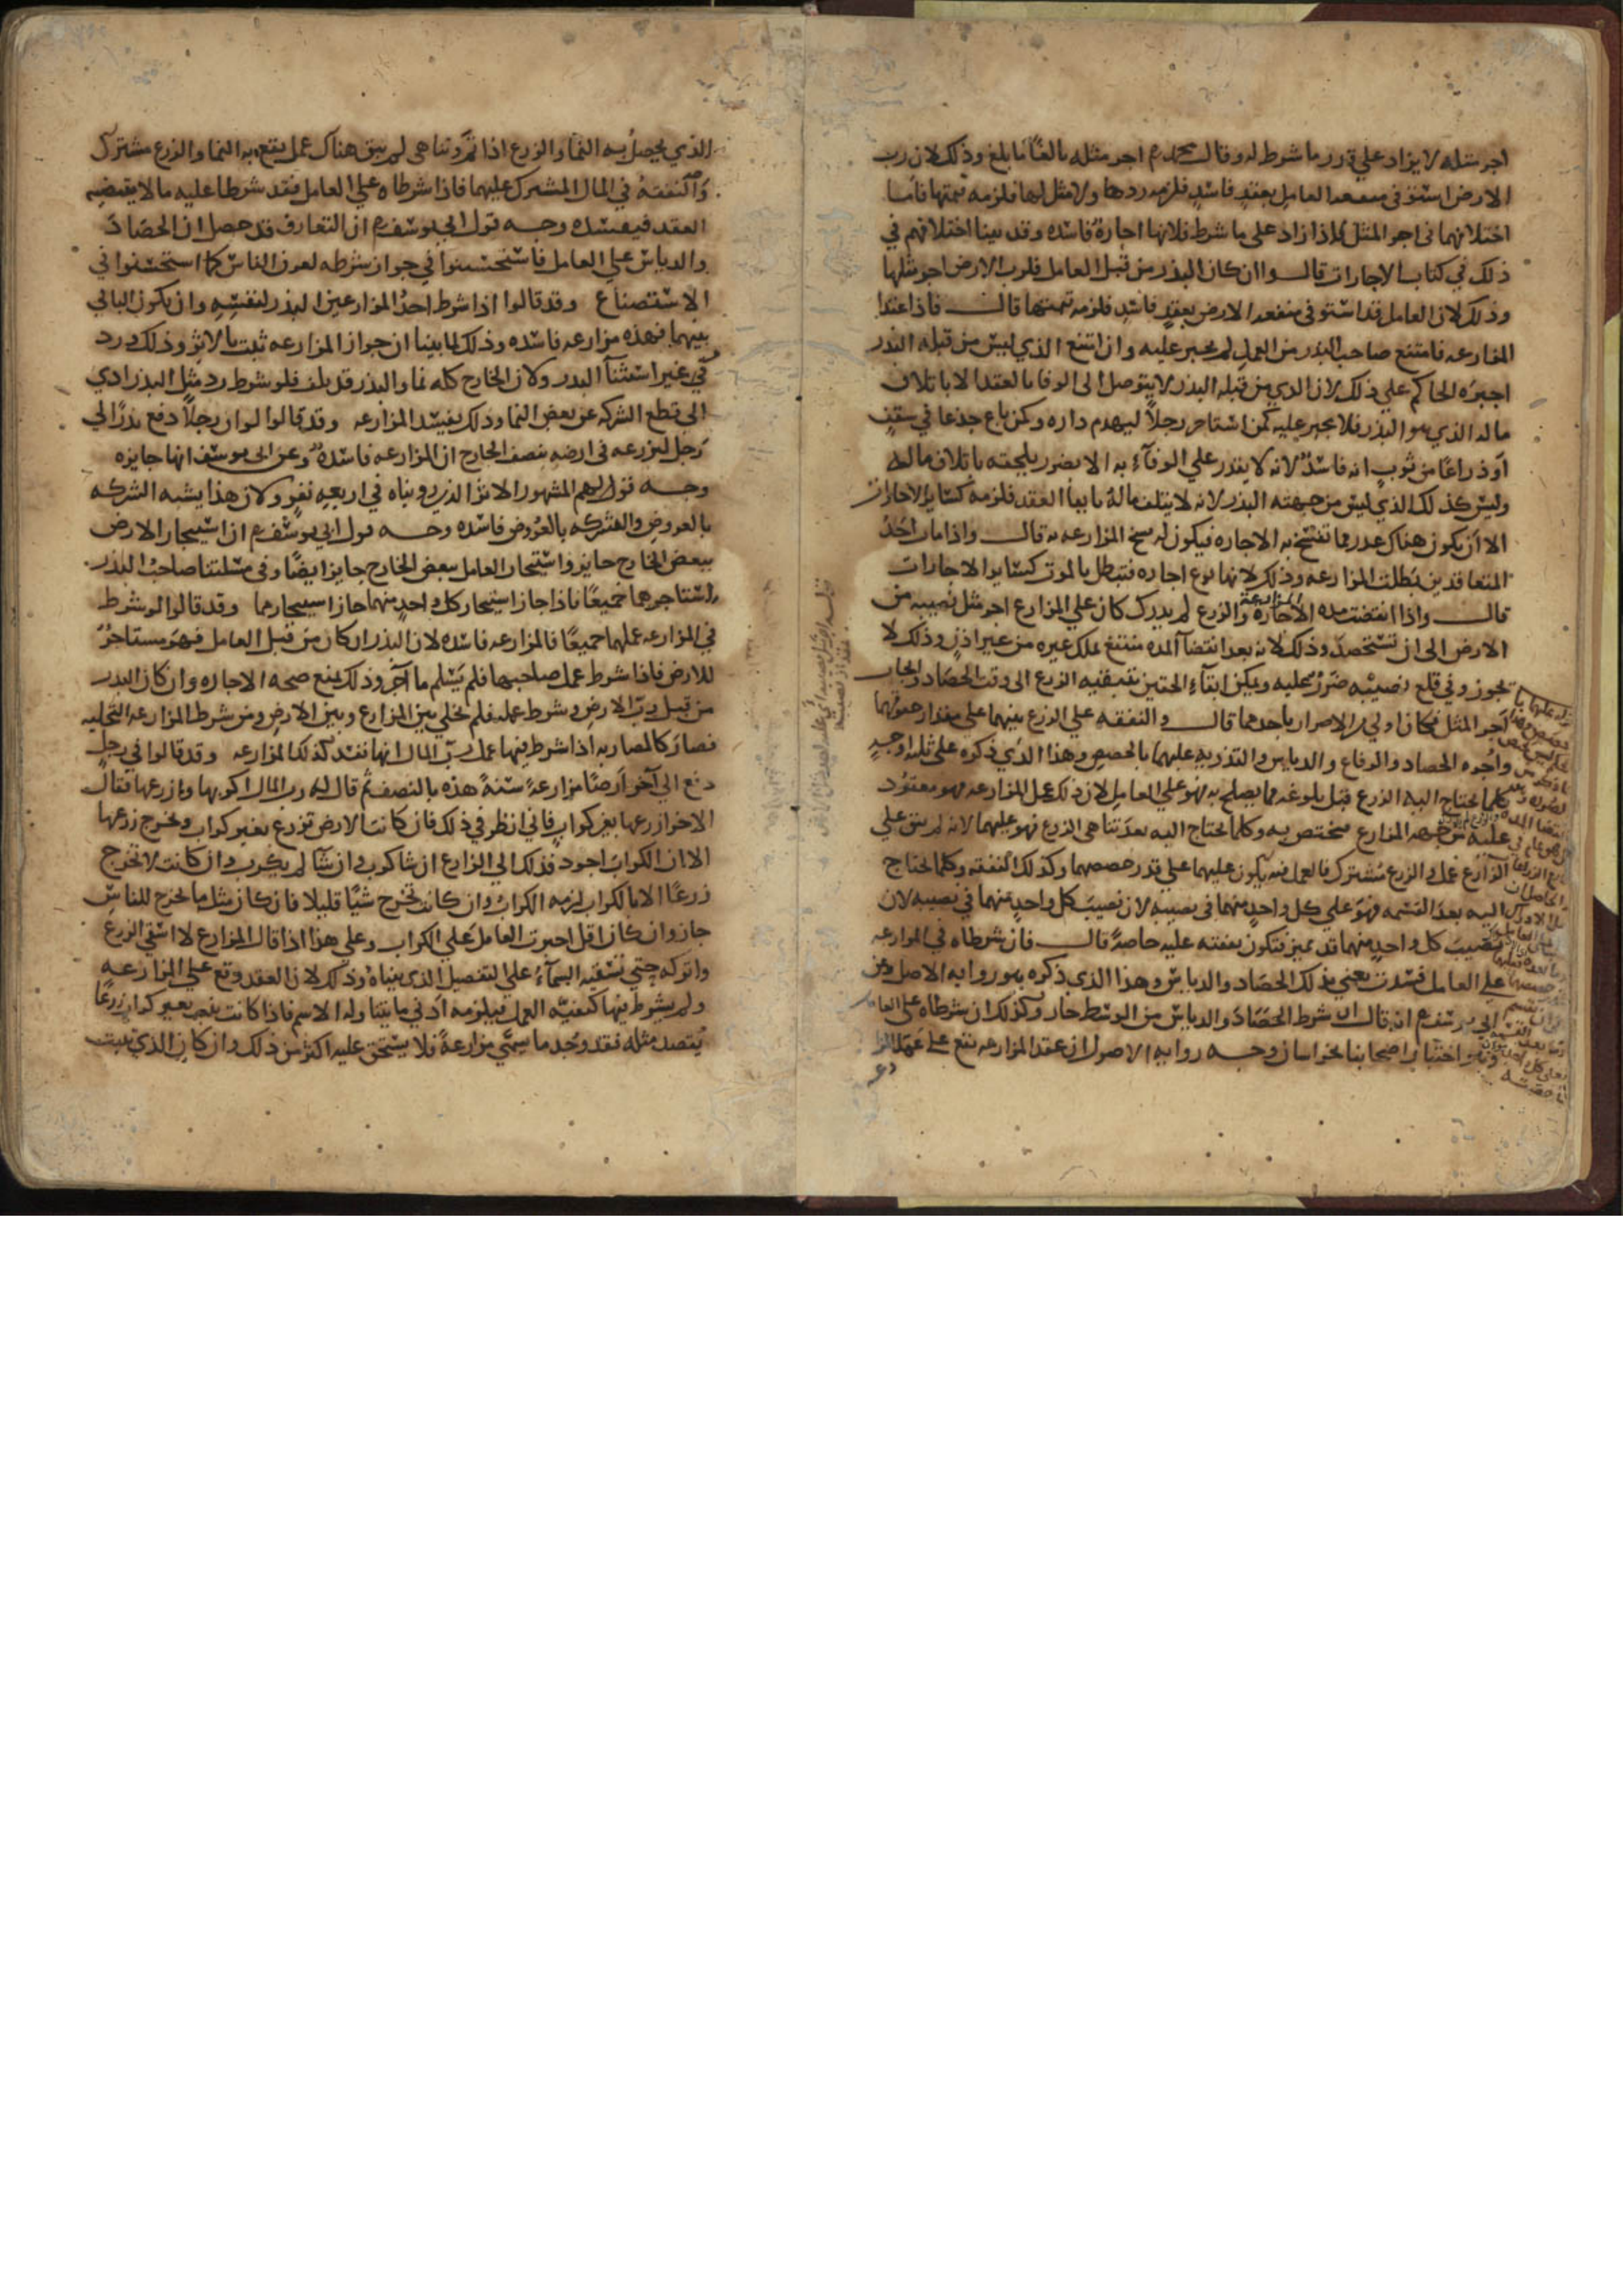 اجر مثله لا يزاد علي قدر ما شرط له وقال محمد رح اجر مثله بالغًا ما بلغ وذلك لان رب
الارض استوفى منفعه العامل بعقدٍ فاسدٍ فلزمه ردها ولا مثل لها فلزمه قيمتها فاما
اختلافهما في اجر المثل اذا زاد على ما شرط فلانها اجارة فاسده وقد بينا اختلافهم في
ذلك في كتاب الاجارات قالوا وان كان البذر من قبل العامل فلرب الارض اجر مثلها
وذلك لان العامل قد استوفى منفعه الارض بعقدٍ فاسدٍ فلزمه قيمتها قال فاذا عقدا
المزارعه فامتنع صاحب البذر من العمل لم يجبر عليه وان امتنع الذي ليس من قبله البذر
اجبره الحاكم علي ذلك لان الذي من قبله البذر لا يتوصل الى الوفا بالعقد الا باتلاف
ماله الذي هو البذر فلا يجبر عليه كمن استاجر رجلاً ليهدم داره وكمن باع جذعا في سقفٍ
او ذراعًا من ثوبٍ انه فاسدٌ لانه لا يقدر علي الوفآء به الا بضرر يلحقه باتلاف ماله
وليس كذلك الذي ليس من جهته البذر لانه لا يتلف ماله بايفا العقد فلزمه كساير الاجارات
الا ان يكون هناك عذر مما تفسخ به الاجاره فيكون له فسخ المزارعه به قال واذا مات احدُ
المتعاقدين بطلت المزارعه وذلك لانها نوع اجاره فتبطل بالموت كساير الاجارات
قال واذا انقضت مده الاجارة والزرع لم يدرك كان علي المزارع اجر مثل نصيبه من
الارض الى ان تستحصد وذلك لانه بعد انقضآ المده منتفع بملك غيره من غير اذنٍ وذلك لا
يجوز وفي قلع نصيبه ضررٌ عليه ويمكن ابقآء الحقين بتبقيه الزرع الى وقت الحصاد وايجاب
اجر المثل فكان اولي من الاضرار باحدهما قال والنفقه علي الزرع بينهما على مقدار حقوقهما
واجره الحصاد والرفاع والدياس والتذريه عليهما بالحصص وهذا الذي ذكره على ثلثه اوجه
كلما يحتاج اليه الزرع قبل بلوغه مما يصلح به فهو علي العامل لان ذلك عمل المزارعه فهو معقود
عليه من جهه المزارع مختص به وكلما يحتاج اليه بعد تناهي الزرع فهو عليهما لانه لم يبق علي
المزارع عمل والزرع مشترك فالعمل فيه يكون عليهما على قدر حصصهما وكذلك النفقه وكلما يحتاج
اليه بعد القسمه فهو علي كل واحدٍ منهما في نصيبه لان نصيب كل واحدٍ منهما في نصيبه لان
نصيب كل واحدٍ منهما قد تميز فتكون نفقته عليه خاصة قال فان شرطاه في المزارعه
على العامل فسدت يعني بذلك الحصاد والدياس وهذا الذي ذكره هو روايه الاصل وعن
ابي يوسف رح انه قال ان شرط الحصاد والدياس من الوسط جاز وكذلك ان شرطاه على العامل
وهو اختيار اصحابنا بخراسان وجه روايه الاصول ان عقد المزارعه يقع على عمل
الذي يحصل به النمآ والزرع اذا تم وتناهى لم يبق هناك عمل يقع به النما والزرع مشترك
والنفقة في المال المشترك عليهما فاذا شرطاه علي العامل فقد شرطا عليه ما لا يقتضيه
العقد فيفسده وجه قول ابي يوسف رح ان التعارف قد حصل ان الحصاد
والدياس علي العامل فاستحسنوا في جواز شرطه لعرف الناس كما استحسنوا في
الاستصناع وقد قالوا اذا شرط احدُ المزارعين البذر لنفسه وان يكون الباقي
بينهما فهذه مزارعه فاسده وذلك لما بينا ان جواز المزارعه ثبت بالاثر وذلك ورد
في غير استثنآ البذر ولان الخارج كله نما والبذر قد تلف فلو شرط رد مثل البذر ادي
الى قطع الشركه عن بعض النما وذلك يفسد المزارعه وقد قالوا لو ان رجلاً دفع بذرًا الي
رجل ليزرعه في ارضه بنصف الخارج ان المزارعه فاسدةٌ وعن ابي يوسف انها جايزه
وجه قولهم المشهور الاثر الذي رويناه في اربعه نفرٍ ولان هذا يشبه الشركه
بالعروض والشركه بالعروض فاسده وجه قول ابي يوسف رح ان استيجار الارض
ببعض الخارج جايز واستيجار العامل ببعض الخارج جايز ايضًا وفي مسلتنا صاحب البذر
استاجرهما جميعًا فاذا جاز استيجار كل واحدٍ منهما جاز استيجارهما وقد قالوا لو شرط
في المزارعه عملهما جميعًا فالمزارعه فاسده لان البذر ان كان من قبل العامل فهو مستاجرٌ
للارض فاذا شرط عمل صاحبها فلم يسلم ما آجر وذلك يمنع صحه الاجاره وان كان البذر
من قبل رب الارض وشرط عمله فلم يخلي بين المزارع وبين الارض ومن شرط المزارعه التخليه
فصار كالمضاربه اذا شرط فيها عمل رب المال انها تفسد كذلك المزارعه وقد قالوا في رجلٍ
دفع الي آخر ارضًا مزارعةً سنةً هذه بالنصف ثم قال له رب المال اكربها وازرعها فقال
الاخر ازرعها بغير كرابٍ فاني انظر في ذلك فان كانت الارض تزرع بغير كراب ويخرج زرعها
الا ان الكراب اجود فذلك الي المزارع ان شا كرب وان شآ لم يكرب وان كانت لا تخرج
زرعًا الا بالكراب لزمه الكراب وان كانت تخرج شيًا قليلا فان كان مثل ما يخرج للناس
جاز وان كان اقل اجبرت العامل علي الكراب وعلي هذا اذا قال المزارع لا اسقي الزرع
واتركه حتي تسقيه السمآءُ علي التفصيل الذي بيناه وذلك لان العقد وقع علي المزارعه
ولم يشرط فيها كيفيه العمل فيلزمه ادني ما يتناوله الاسم فاذا كانت تزرع بغير كراب زرعًا
يقصد مثله فقد وجد ما سمي مزارعةً فلا يستحق عليه اكثر من ذلك وان كان الذي ينبت